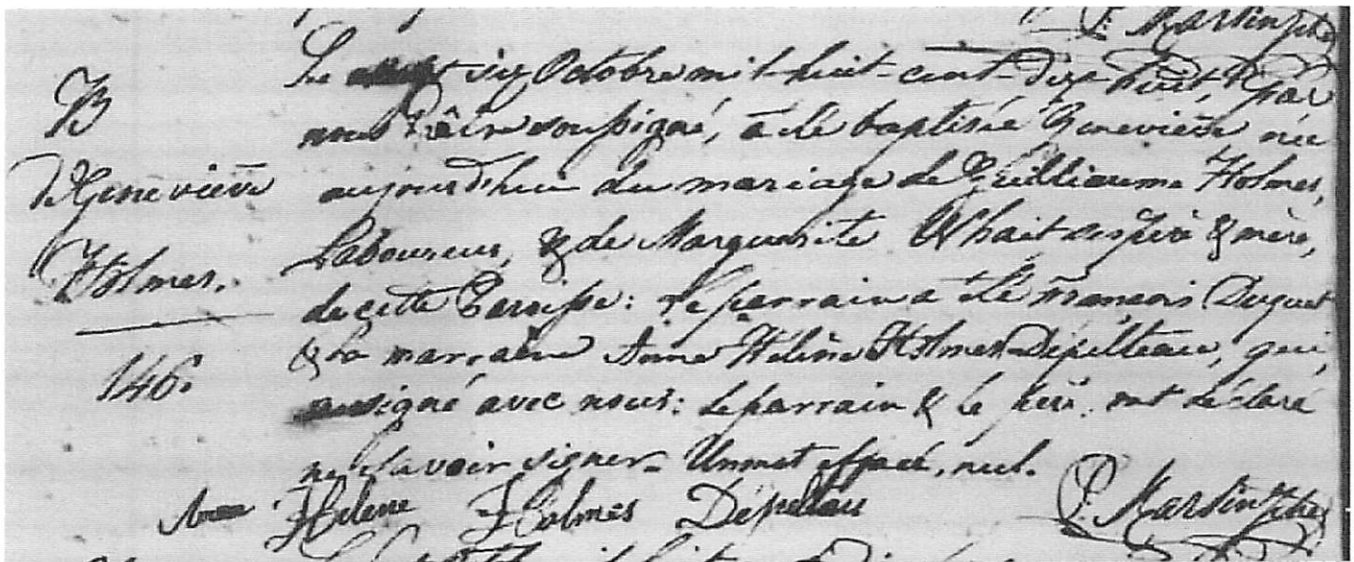 P. Martin Ptre
B
de Genevieve
Holmes.
146.
Le six Octobre mil-huit-cent-dix-huit, par
nous Prêtre soussigné, a été baptisée Genevieve née
aujourd'hui du mariage de Guilliaume Holmes,
Laboureur, & de Marguerite ses père & mère,
de cette Paroisse: Le parrain a été Duquet
& la marraine Anne Hélène Holmes Dépelteau, qui
a signé avec nous: le parrain & le père ont déclaré
ne savoir signer. Un mot effacé, nul.
Anne Helene Holmes Dépeltau
P. Martin Ptre